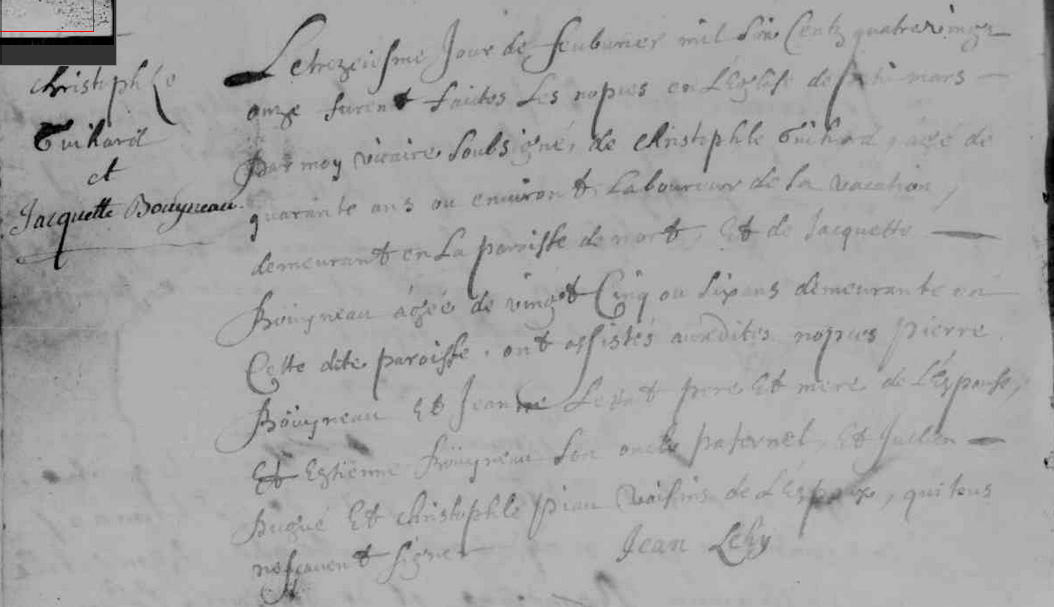 christophle
Guihard
et
Jacquette Bouyneau.
Le trezeiesme Jour de feubvrier mil Six Centz quatre vingz
onze furent faites Les nopces en L'Eglise de petit mars
par moy vicaire Soubsigné, de christophle Guihard, agé de
quarante ans ou environt Laboureur de La vacation,
demeurant en La paroisse de nort, Et de Jacquette
Bouyneau agée de vingt Cinq ou Six ans demeurante en
Cette dite paroisse, ont assistés auxdites nopces pierre
Bouyneau Et Jeanne pere Et mere de L'Espouse,
Et Estienne Bouyneau Son oncle paternel, Et Jullien
hugué Et christophle piau voisins de L'Espoux, qui tous
ne sçavent signer Jean Lehy